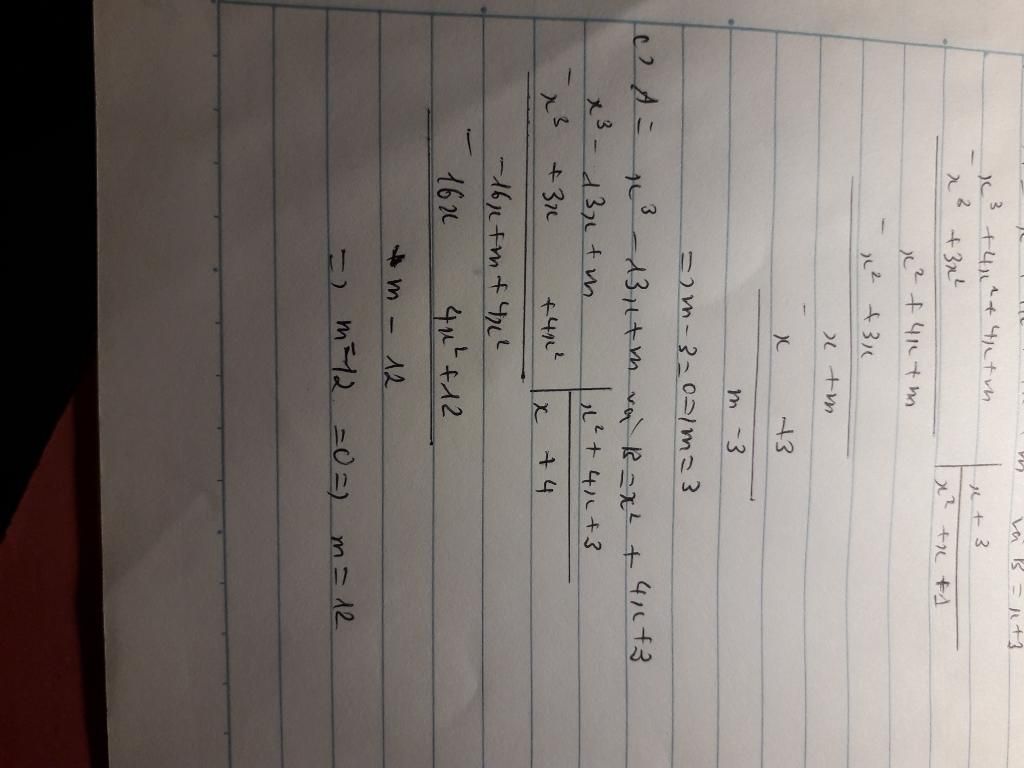 và B = x+3
x³ + 4x² + 4x + m | x + 3
- x³ + 3x² | x² + x + 1
x² + 4x + m
- x² + 3x
x + m
- x + 3
m - 3
=> m - 3 = 0 => m = 3
c) A = x³ - 13x + m và B = x² + 4x + 3
x³ - 13x + m | x² + 4x + 3
- x³ + 3x + 4x² | x + 4
-16x + m + 4x²
- 16x 4x² + 12
m - 12
=> m - 12 = 0 => m = 12